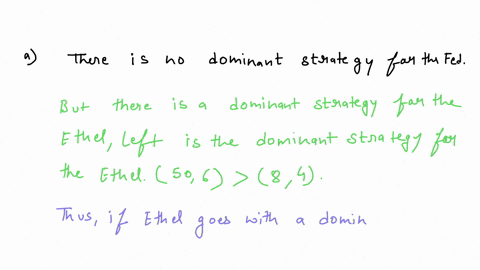 a) There is no dominant strategy for the Fed.
But there is a dominant strategy for the
Ethel, Left is the dominant strategy for
the Ethel. (50,6) > (8,4).
Thus, if Ethel goes with a domin